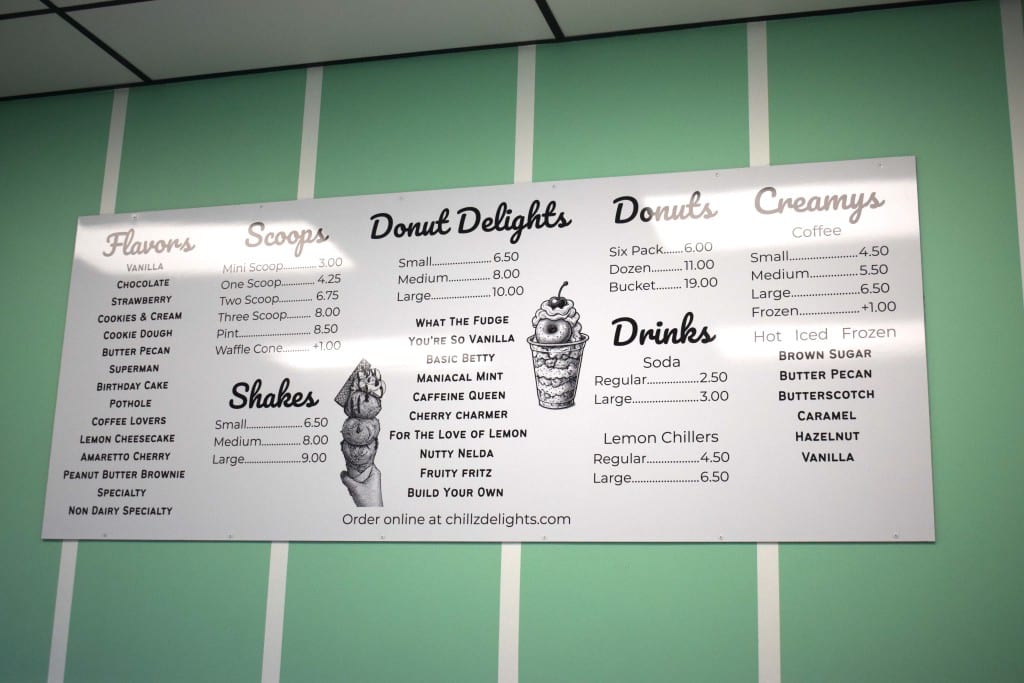 Flavors
VANILLA
CHOCOLATE
STRAWBERRY
COOKIES & CREAM
COOKIE DOUGH
BUTTER PECAN
SUPERMAN
BIRTHDAY CAKE
POTHOLE
COFFEE LOVERS
LEMON CHEESECAKE
AMARETTO CHERRY
PEANUT BUTTER BROWNIE
SPECIALTY
NON DAIRY SPECIALTY
Scoops
Mini Scoop............... 3.00
One Scoop............... 4.25
Two Scoop............... 6.75
Three Scoop............ 8.00
Pint........................... 8.50
Waffle Cone............ +1.00
Shakes
Small................... 6.50
Medium.............. 8.00
Large....................9.00
Donut Delights
Small........................ 6.50
Medium................. 8.00
Large........................ 10.00
WHAT THE FUDGE
YOU'RE SO VANILLA
BASIC BETTY
MANIACAL MINT
CAFFEINE QUEEN
CHERRY CHARMER
FOR THE LOVE OF LEMON
NUTTY NELDA
FRUITY FRITZ
BUILD YOUR OWN
Donuts
Six Pack......6.00
Dozen.......... 11.00
Bucket......... 19.00
Drinks
Soda
Regular.................2.50
Large..................... 3.00
Lemon Chillers
Regular.................4.50
Large..................... 6.50
Creamys
Coffee
Small........................4.50
Medium...................5.50
Large........................6.50
Frozen.....................+1.00
Hot Iced Frozen
BROWN SUGAR
BUTTER PECAN
BUTTERSCOTCH
CARAMEL
HAZELNUT
VANILLA
Order online at chillzdelights.com